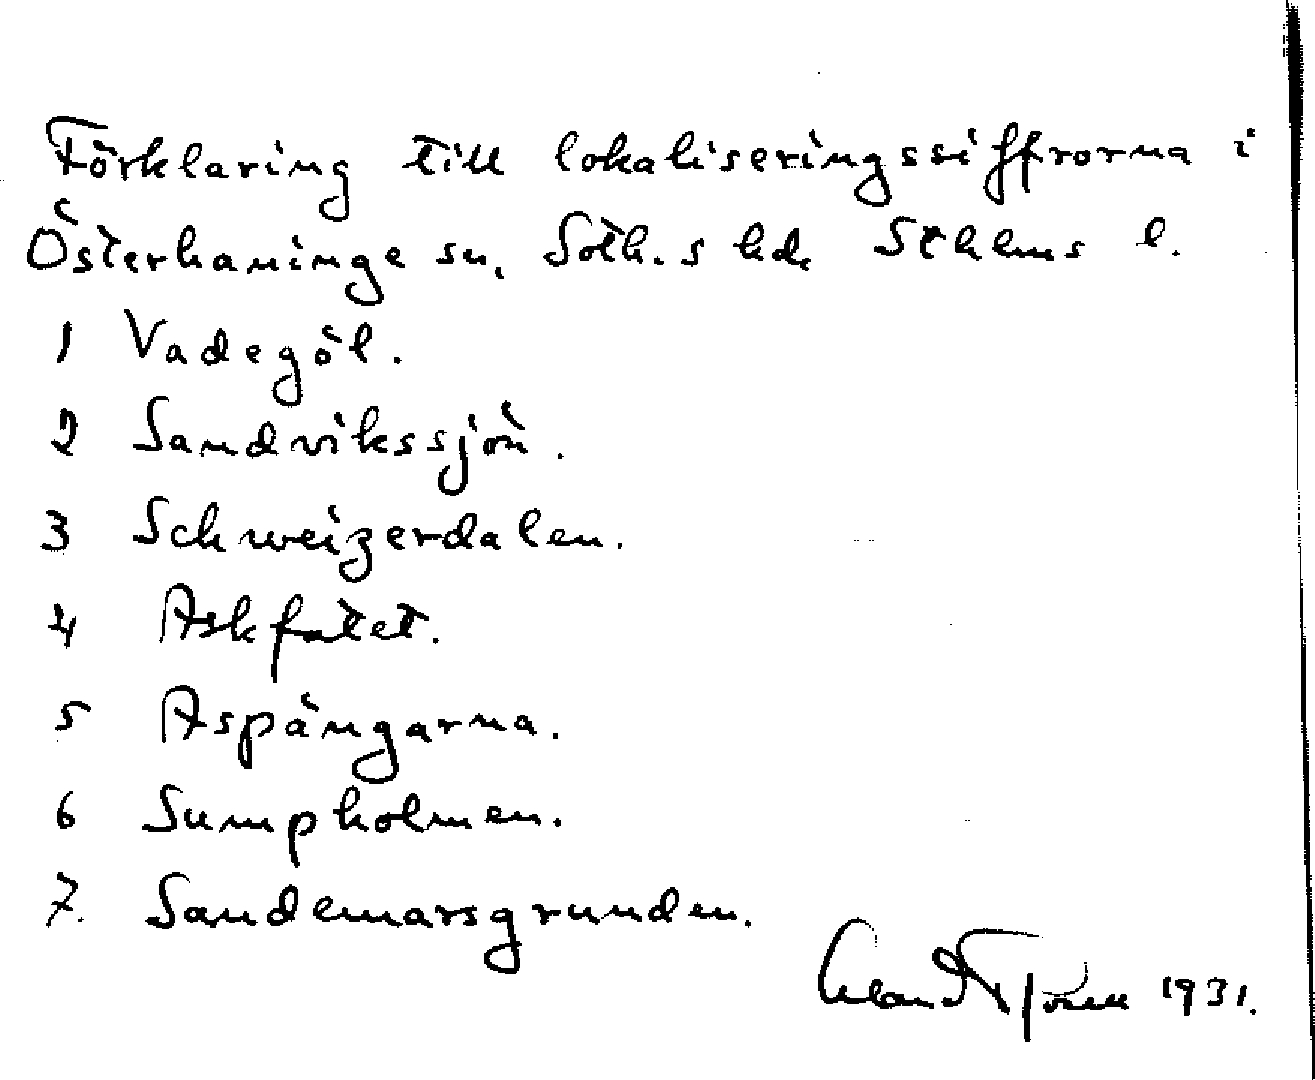 Förklaring till lokaliseringssiffrorna i
Österhaninge sn, Soth.s hd. Sthlms l.
1 Vadegöl.
2 Sandvikssjön.
3 Schweizerdalen.
4 Askfatet.
5 Aspängarna.
6 Sumpholmen.
7. Sandemarsgrunden.
1931.